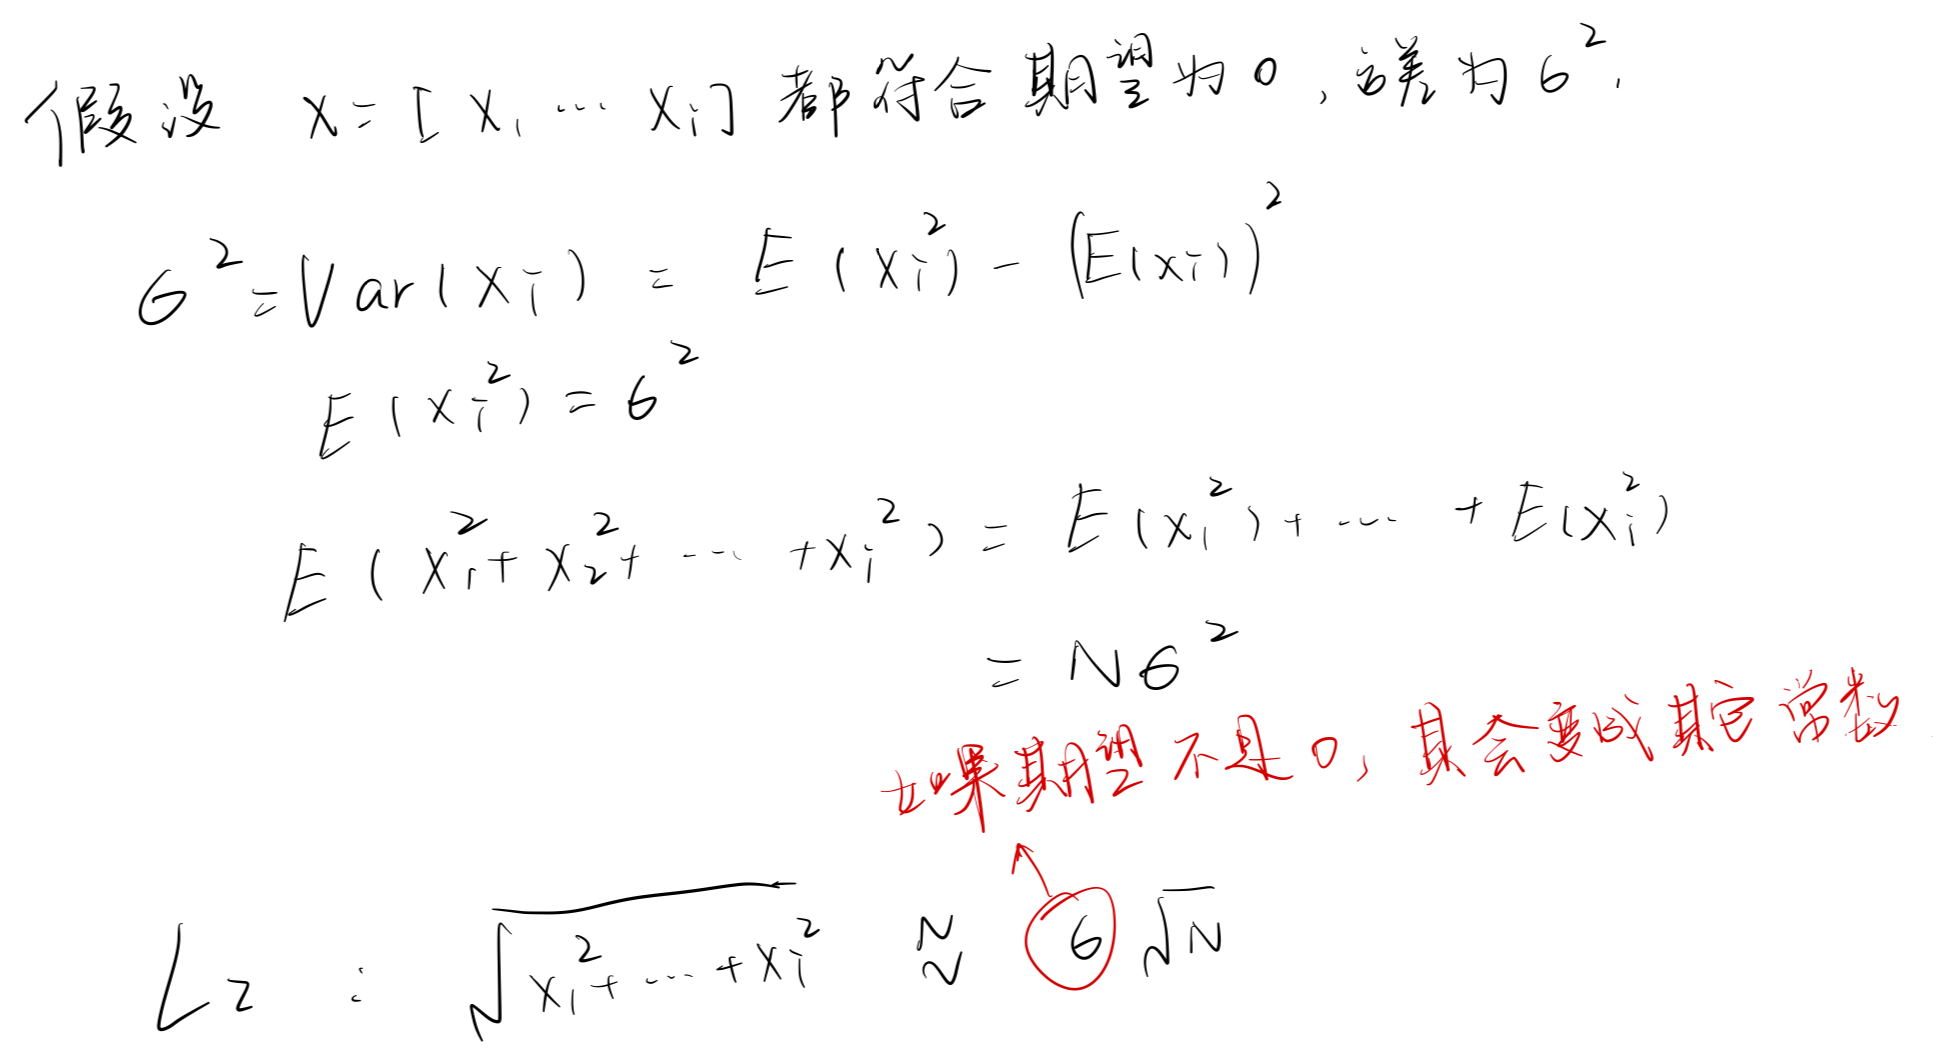 假设 X = [ X₁ ⋯ Xᵢ] 都符合期望为0,方差为 σ².
σ² = Var(Xᵢ) = E(Xᵢ²) - (E(Xᵢ))²
E(Xᵢ²) = σ²
E(X₁² + X₂² + ⋯ + Xᵢ²) = E(X₁²) + ⋯ + E(Xᵢ²)
= Nσ²
如果期望不是0, 其会变成其它常数
L₂ : √(X₁² + ⋯ + Xᵢ²) ≈ σ√N